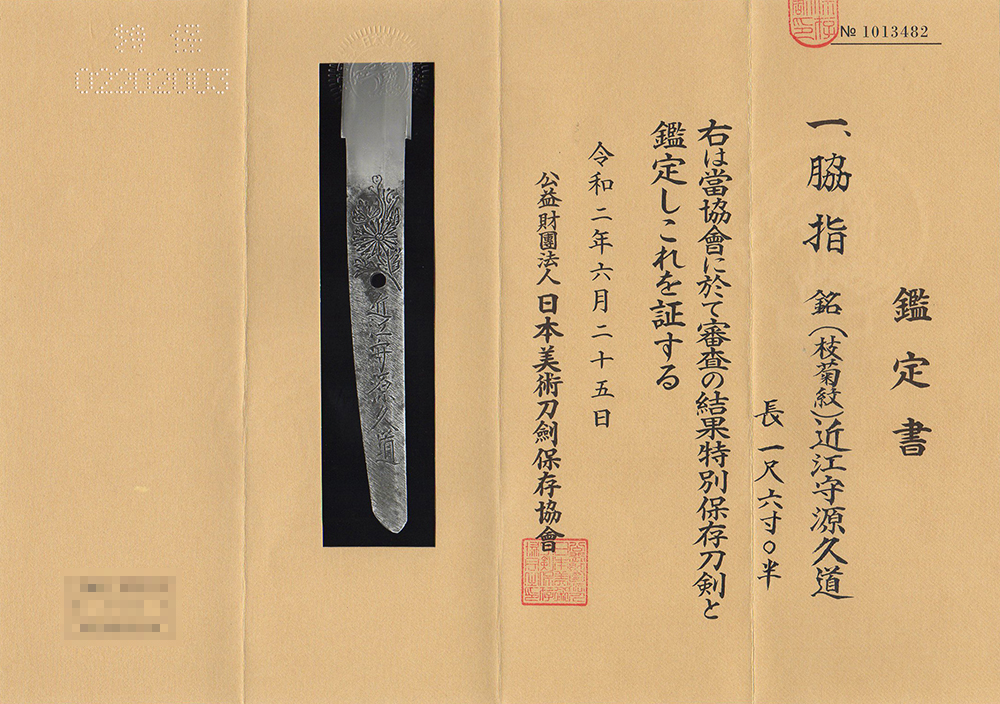 № 1013482
鑑定書
一、脇指 銘(枝菊紋)近江守源久道
長一尺六寸〇半
右は當協會に於て審査の結果特別保存刀剣と
鑑定しこれを証する
令和二年六月二十五日
公益財團法人 日本美術刀劍保存協會
近江守源久道
特保
02202003